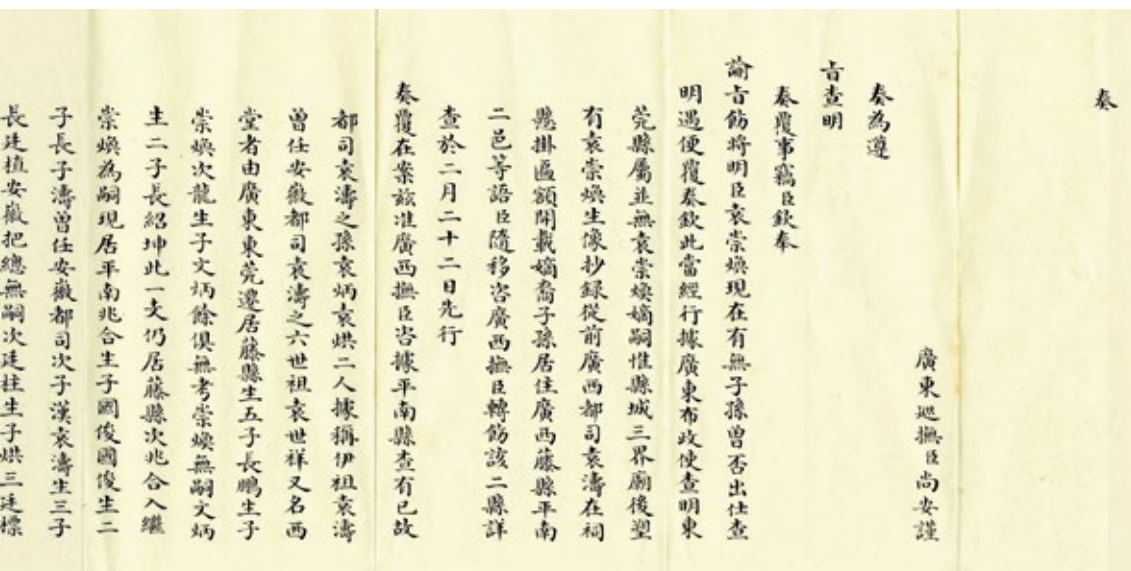 奏
廣東巡撫臣尚安謹
奏為遵
旨查明
奏覆事竊臣欽奉
諭旨飭將明臣袁崇煥現在有無子孫曾否出仕查
明遇便覆奏欽此當經行據廣東布政使查明東
莞縣屬並無袁崇煥嫡嗣惟縣城三界廟後塑
有袁崇煥生像抄録從前廣西都司袁濤在祠
懸掛匾額開載嫡裔子孫居住廣西藤縣平南
二邑等語臣隨移咨廣西撫臣轉飭該二縣詳
查於二月二十二日先行
奏覆在案茲准廣西撫臣咨據平南縣查有已故
都司袁濤之孫袁炳袁烘二人據稱伊祖袁濤
曾任安徽都司袁濤之六世祖袁世祥又名西
堂者由廣東東莞遷居藤縣生五子長鵬生子
崇煥次龍生子文炳餘俱無考崇煥無嗣文炳
生二子長紹坤此一支仍居藤縣次兆合入繼
崇煥為嗣現居平南兆合生子國俊國俊生二
子長子濤曾任安徽都司次子漢袁濤生三子
長廷植安徽把總無嗣次廷柱生子烘三廷標